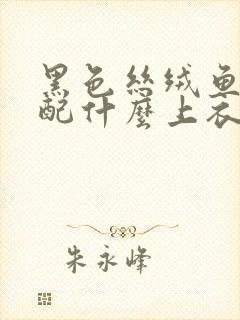 黑色絲绒鱼
配什麼上衣
朱永峰